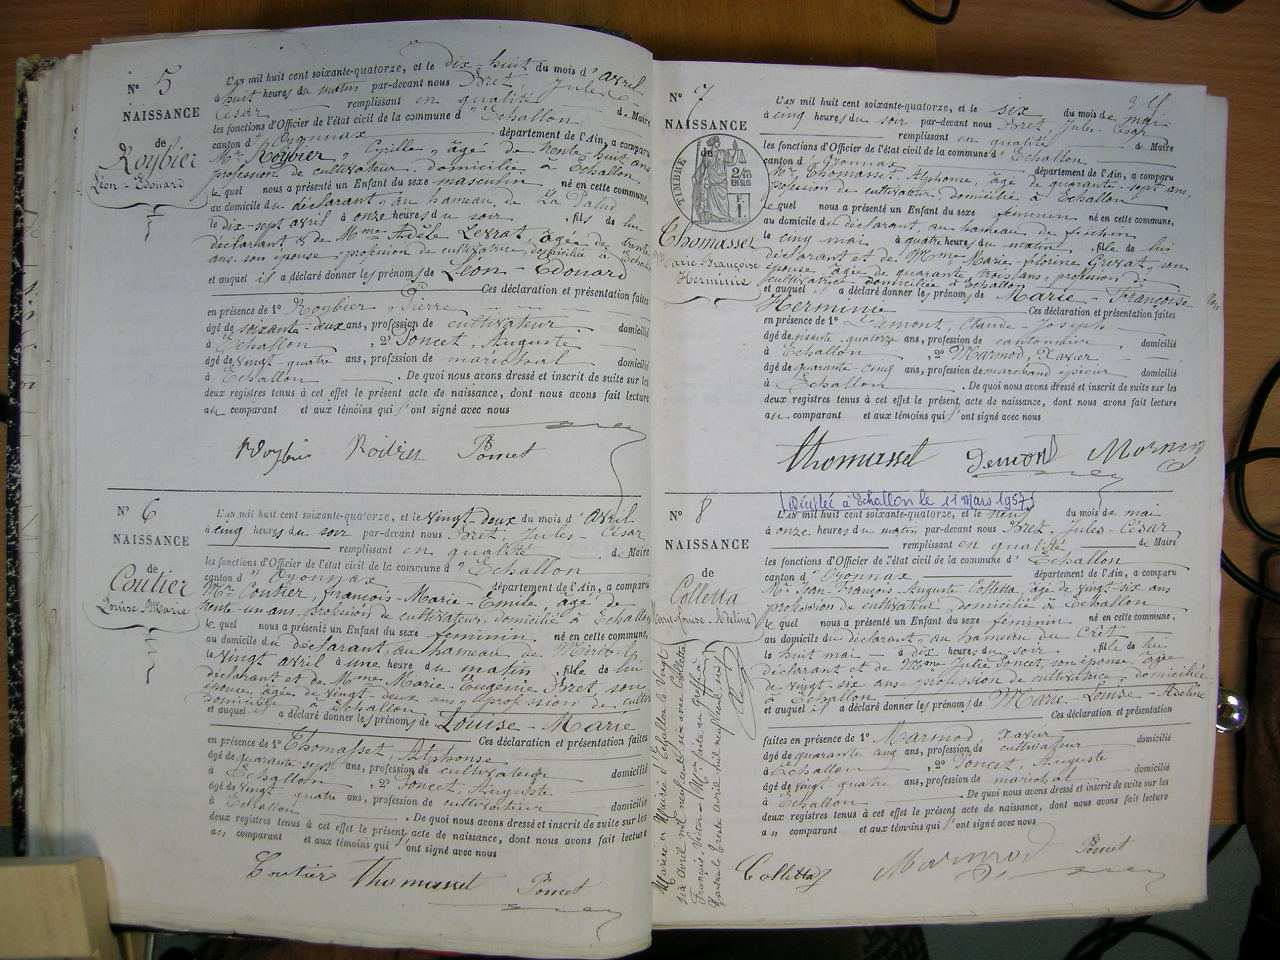 N° 5
NAISSANCE
de
Roybier
Léon-Edouard
L'AN mil huit cent soixante-quatorze, et le dix-huit du mois d'avril
à huit heures du matin par-devant nous Bret, Jules-
César remplissant en qualité de Maire
les fonctions d'Officier de l'état civil de la commune d'Echallon
canton d'Oyonnax département de l'Ain, a comparu
Mr Roybier Cyrille, âgé de trente huit ans
profession de cultivateur, domicilié à Echallon
lequel nous a présenté un Enfant du sexe masculin né en cette commune,
au domicile du déclarant, au hameau de La Palud
le dix-sept avril à onze heures du soir, fils de lui
déclarant & de Mme Adèle Levrat, âgée de trente
ans, son épouse, profession de cultivatrice, domiciliée à Echallon
et auquel il a déclaré donner les prénoms de Léon-Edouard
Ces déclaration et présentation faites
en présence de 1° Roybier Pierre
âgé de soixante-deux ans, profession de cultivateur domicilié
à Echallon, 2° Poncet, Auguste
âgé de vingt quatre ans, profession de domicilié
à Echallon. De quoi nous avons dressé et inscrit de suite sur les
deux registres tenus à cet effet le présent acte de naissance, dont nous avons fait lecture
au comparant et aux témoins qui l'ont signé avec nous
Roybier Poncet
N° 6
NAISSANCE
de
Coutier
Louise-Marie
L'AN mil huit cent soixante-quatorze, et le vingt-deux du mois d'avril
à cinq heures du soir par-devant nous Bret, Jules-César
remplissant en qualité de Maire
les fonctions d'Officier de l'état civil de la commune d'Echallon
canton d'Oyonnax département de l'Ain, a comparu
Mr Coutier, François-Marie-Emile, âgé de
trente un ans, profession de cultivateur, domicilié à Echallon
lequel nous a présenté un Enfant du sexe féminin né en cette commune,
au domicile du déclarant, au hameau de
le vingt avril à une heure du matin, fille de lui
déclarant et de Mme Marie-Eugénie Bret, son
épouse, âgée de vingt-deux ans, profession de
domiciliée à Echallon
et auquel a déclaré donner les prénoms de Louise-Marie
Ces déclaration et présentation faites
en présence de 1° Thomasset, Alphonse
âgé de quarante sept ans, profession de cultivateur domicilié
à Echallon, 2° Poncet, Auguste
âgé de vingt quatre ans, profession de cultivateur domicilié
à Echallon. De quoi nous avons dressé et inscrit de suite sur les
deux registres tenus à cet effet le présent acte de naissance, dont nous avons fait lecture
au comparant et aux témoins qui l'ont signé avec nous
Coutier Thomasset Poncet
N° 7
NAISSANCE
de
TIMBRE
Thomasset
Marie-Françoise
Hermine
L'AN mil huit cent soixante-quatorze, et le six du mois de mai
à cinq heures du soir par-devant nous Bret Jules César
remplissant en qualité de Maire
les fonctions d'Officier de l'état civil de la commune d'Echallon
canton d'Oyonnax département de l'Ain, a comparu
Mr Thomasset, Alphonse, âgé de quarante sept ans,
profession de cultivateur, domicilié à Echallon
lequel nous a présenté un Enfant du sexe féminin né en cette commune,
au domicile du déclarant, au hameau de
le cinq mai à quatre heures du matin, fille de lui
déclarant et de Mme Marie-Florine son
épouse, âgée de quarante trois ans, profession de
cultivatrice domiciliée à Echallon
et auquel a déclaré donner les prénoms de Marie-Françoise
Hermine Ces déclaration et présentation faites
en présence de 1° Demont, Claude-Joseph
âgé de trente quatorze ans, profession de cantonnier, domicilié
à Echallon, 2° Marmod, Xavier
âgé de quarante cinq ans, profession de marchand épicier domicilié
à Echallon. De quoi nous avons dressé et inscrit de suite sur les
deux registres tenus à cet effet le présent acte de naissance, dont nous avons fait lecture
au comparant et aux témoins qui l'ont signé avec nous
Thomasset Demont Marmod
(Décédée à Echallon le 11 Mars 1957)
N° 8
NAISSANCE
de
Colletta
Marie-Louise-Adeline
L'AN mil huit cent soixante-quatorze, et le neuf du mois de mai
à onze heures du matin par-devant nous Bret, Jules-César
remplissant en qualité de Maire
les fonctions d'Officier de l'état civil de la commune d'Echallon
canton d'Oyonnax département de l'Ain, a comparu
Mr Jean-François-Auguste Colletta, âgé de vingt-six ans
profession de cultivateur, domicilié à Echallon
lequel nous a présenté un Enfant du sexe féminin né en cette commune,
au domicile du déclarant, au hameau du Crêt
le huit mai à dix heures du soir, fille de lui
déclarant et de Mme Julie Poncet, son épouse, âgée
de vingt-six ans profession de cultivatrice, domiciliée
à Echallon
et auquel a déclaré donner les prénoms de Marie-Louise-Adeline
Ces déclaration et présentation
faites en présence de 1° Marmod, Xavier
âgé de quarante cinq ans, profession de cultivateur domicilié
à Echallon, 2° Poncet, Auguste
âgé de vingt-quatre ans, profession de maréchal domicilié
à Echallon. De quoi nous avons dressé et inscrit de suite sur les
deux registres tenus à cet effet le présent acte de naissance, dont nous avons fait lecture
au comparant et aux témoins qui l'ont signé avec nous
Colletta Marmod Poncet
Mariée à Mairie d'Echallon le vingt
six avril mil neuf cent six avec Colletta
François